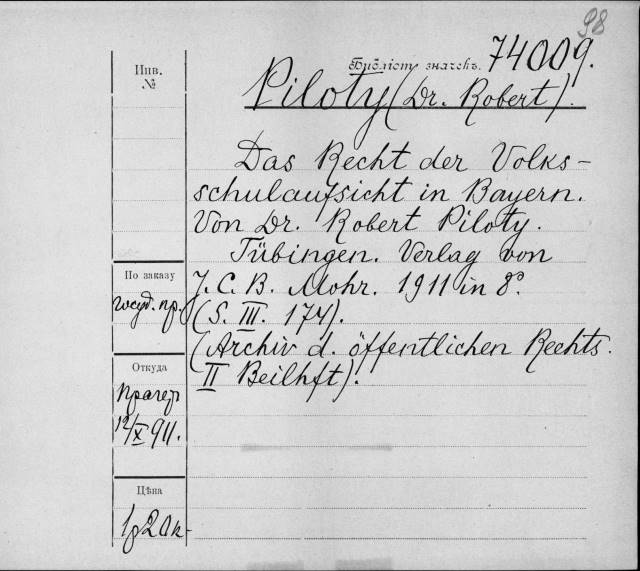 98
Библіот. значекъ. 74009.
Инв.
№
Piloty (Dr. Robert).
Das Recht der Volks-
schulaufsicht in Bayern.
Von Dr. Robert Piloty.
Tübingen. Verlag von
J. C. B. Mohr. 1911 in 8º.
(S. III. 174).
(Archiv d. öffentlichen Rechts.
II Beilhft).
По заказу
госуд. пр.
Откуда
12/X 911.
Цѣна
1р 20к-